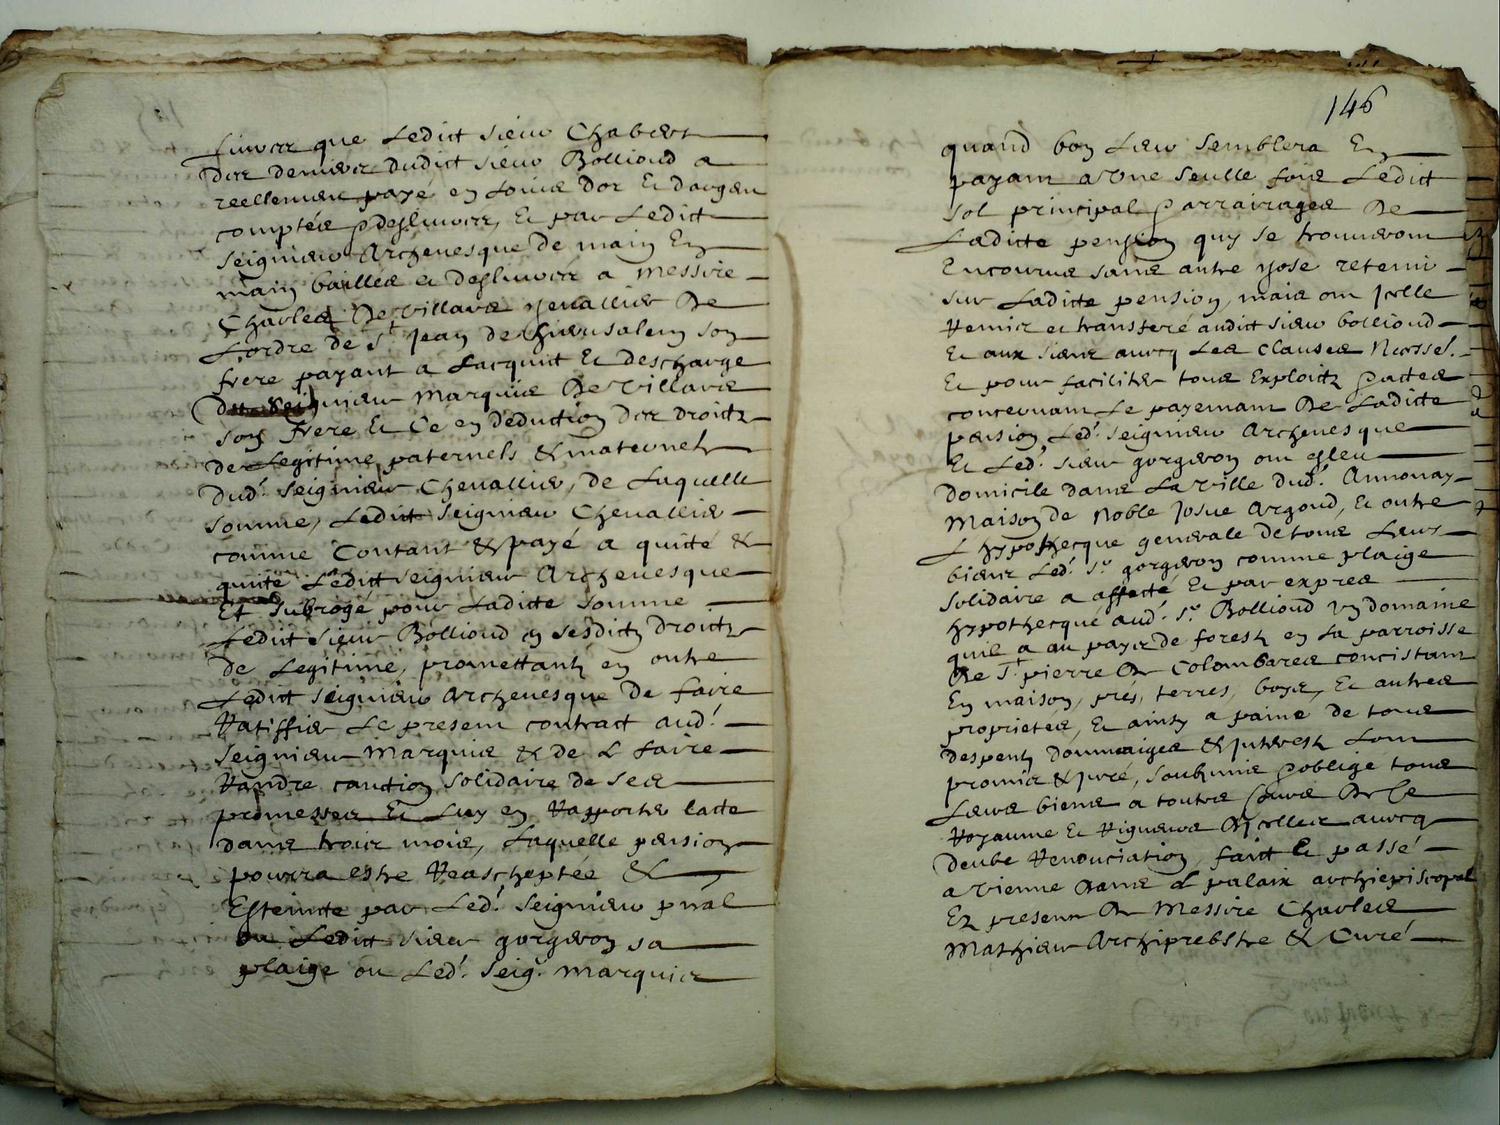 livres que Ledict sieur Chabert
des deniers dudict sieur Bollioud a
reellement payé en Louis dor Et dargen
comptés & deslivrés, Et par Ledict
Seigneur Archevesque de main En
main baillés et deslivrés a Messire
Charles De Villars chevallier De
Lordre de St Jean de hierusalem son
frere payant a Lacquit Et descharge
du Seigneur Marquis De Villars
son frere Et Ce en deduction des droictz
de Legitime paternels & maternels
dud. Seigneur Chevallier, de Laquelle
somme, Ledict Seigneur Chevallier
comme Contant & payé a quitté &
quitte Ledict seigneur Archevesque
Et subrogé pour Ladicte somme
Ledict sieur Bollioud en sesdictz droictz
de Legitime, promettant en outre
Ledict seigneur Archevesque de faire
Rattiffier Le present contract aud.
Seigneur Marquis & de L faire
Randre caution solidaire de ses
promesses Et Luy en Rapporter lacte
dans trois mois, Laquelle pension
pourra estre Reacheptée &
Esteincte par Led. Seigneur pnal
ou Ledict sieur gorgeron sa
plaige ou Led. Seig. Marquis
146
quand bon Leur semblera En
payant a Une seulle fois Ledict
sol principal & arrairages De
Ladicte pension quy se trouveront
Encourus sans autre chose retenir
sur Ladicte pension, mais ont Icelle
Remis et transferé audict sieur bollioud
Et aux siens avecq Les clauses Necess.
Et pour faciliter tous Exploictz & actes
concernant Le payemant De Ladicte
pension Led. seigneur Archevesque
Et Led. sieur gorgeron ont esleu
domicile dans La Ville dud. Annonay
Maison de Noble Josue Argoud, Et outre
L hypothecque generale de tous Leurs
biens Led. Sr gorgeron comme plaige
solidaire a affecté Et par expres
hypothecqué aud. Sr Bollioud un domaine
quil a au pays de forest en La parroisse
De St pierre De Colombares concistant
En maison, prés, terres, boys, Et autres
proprietés, Et ainsy a paine de tous
despens dommaiges & Interest Lont
promis & Juré, soubmis & oblige tous
Leurs biens a toutes Cours De Ce
Royaume Et Rigueurs Dicelles avecq
deube Renonciation, faict Et passé
a Vienne Dans L palaix archiepiscopal
En presence De Messire Charles
Mathieu Archiprebstre & Curé